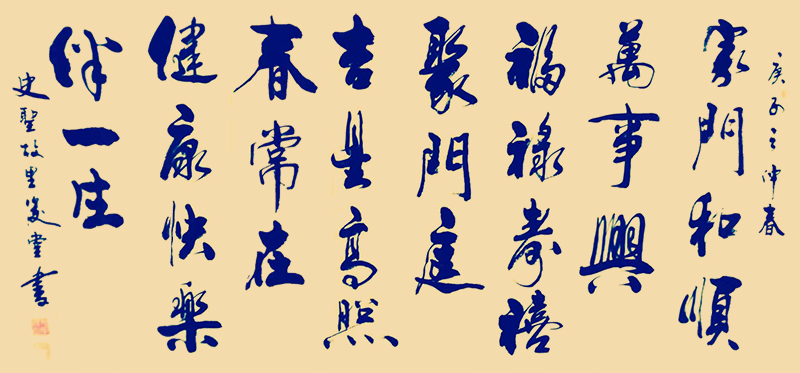 庚子之仲春
家門和順
萬事興
福祿壽禧
聚門庭
吉星高照
春常在
健康快樂
伴一生
史聖故里俊堂書